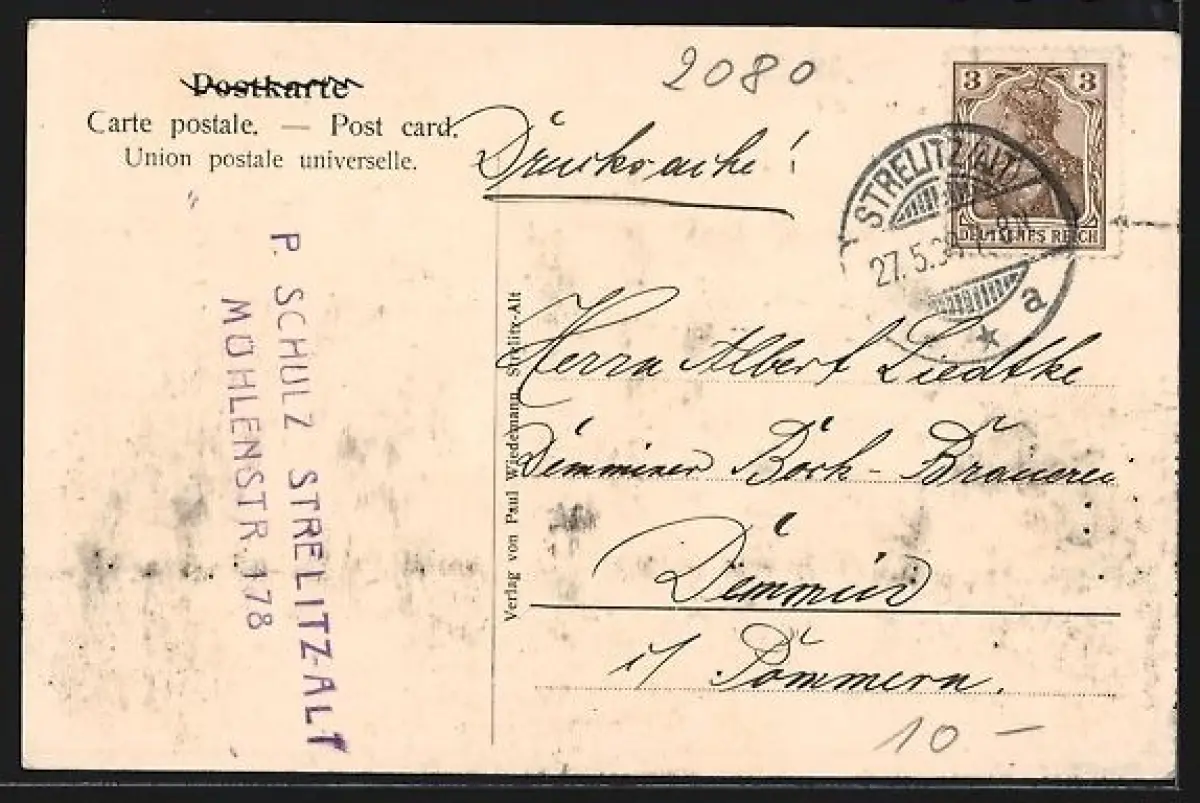 2080
Postkarte
Carte postale. — Post card.
Union postale universelle.
Drucksache!
3 3
DEUTSCHES REICH
STRELITZ (ALT)
27.5.
a
P. SCHULZ STRELITZ-ALT
MÜHLENSTR. 178
Verlag von Paul Wiedemann, Strelitz-Alt
Herrn Albert Liedtke
Demminer Bock-Brauerei
Demmin
i/ Pommern.
10 —